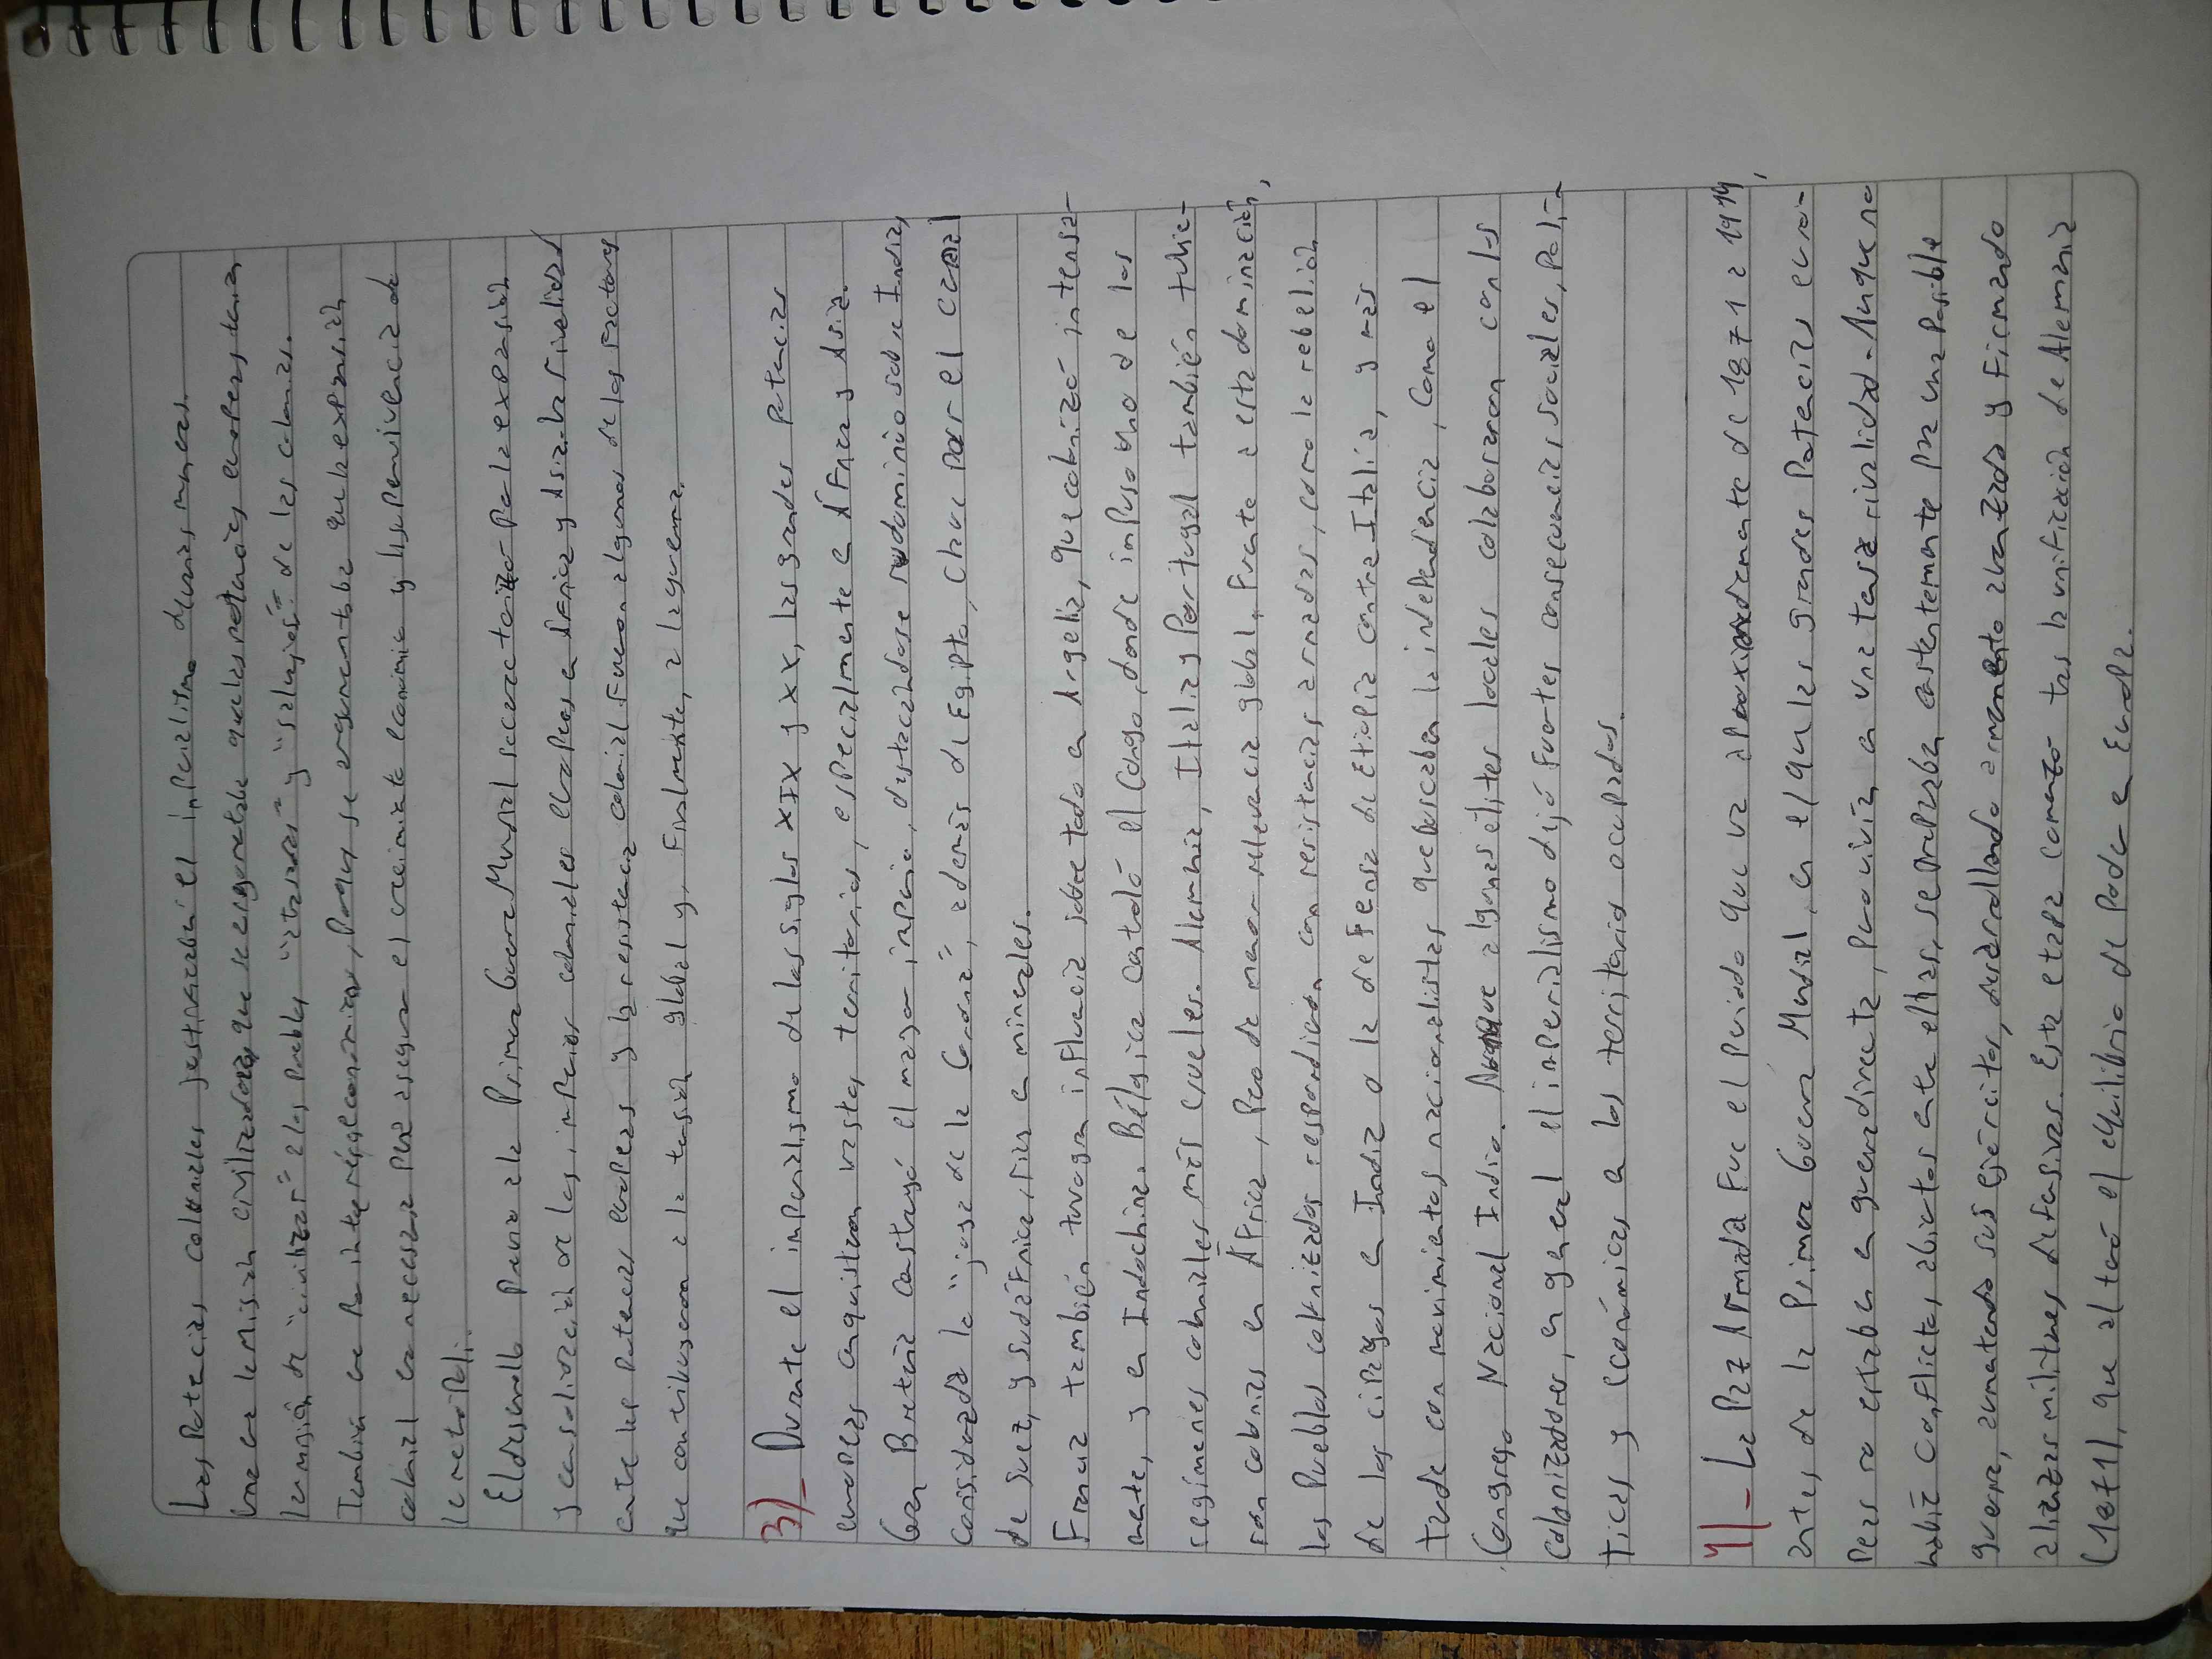 Las Potencias coloniales justificaban el imperialismo de varias maneras.
Una era la misión civilizadora, que se argumentaba que las potencias europeas tenían
la misión de "civilizar" a los pueblos "atrasados" y "salvajes" de las colonias.
También era por interés económico, porque se argumentaba que la expansión
colonial era necesaria para asegurar el crecimiento económico y la supervivencia de
la metrópoli.
El desarrollo Previo a la Primera Guerra Mundial se caracterizó por la expansión
y consolidación de los imperios coloniales europeos en África y Asia. La rivalidad
entre las potencias europeas y la resistencia colonial fueron algunos de los factores
que contribuyeron a la tensión global y, finalmente, a la guerra.
3)- Durante el imperialismo de los siglos XIX y XX, las grandes potencias
europeas conquistaron vastos territorios, especialmente en África y Asia.
Gran Bretaña construyó el mayor imperio, destacándose su dominio sobre India,
considerada la "joya de la Corona", además de Egipto, clave por el canal
de Suez, y Sudáfrica, rica en minerales.
Francia también tuvo gran influencia sobre todo en Argelia, que colonizó intensa-
mente, y en Indochina. Bélgica controló el Congo, donde impuso uno de los
regímenes coloniales más crueles. Alemania, Italia y Portugal también tuvie-
ron colonias en África, pero de menor relevancia global. Frente a esta dominación,
los Pueblos colonizados respondieron con resistencias armadas, como la rebelión
de los cipayos en India o la defensa de Etiopía contra Italia, y más
tarde con movimientos nacionalistas que buscaban la independencia, como el
Congreso Nacional Indio. Aunque algunas élites locales colaboraron con los
colonizadores, en general el imperialismo dejó fuertes consecuencias sociales, polí-
ticas y económicas en los territorios ocupados.
4)- La Paz Armada fue el período que va aproximadamente de 1871 a 1914,
antes de la Primera Guerra Mundial, en el que las grandes Potencias euro-
peas no estaban en guerra directa, pero vivían en una tensa rivalidad. Aunque no
había conflictos abiertos entre ellas, se preparaban constantemente para una posible
guerra, aumentando sus ejércitos, desarrollando armamento avanzado y firmando
alianzas militares defensivas. Esta etapa comenzó tras la unificación de Alemania
(1871), que alteró el equilibrio de poder en Europa.